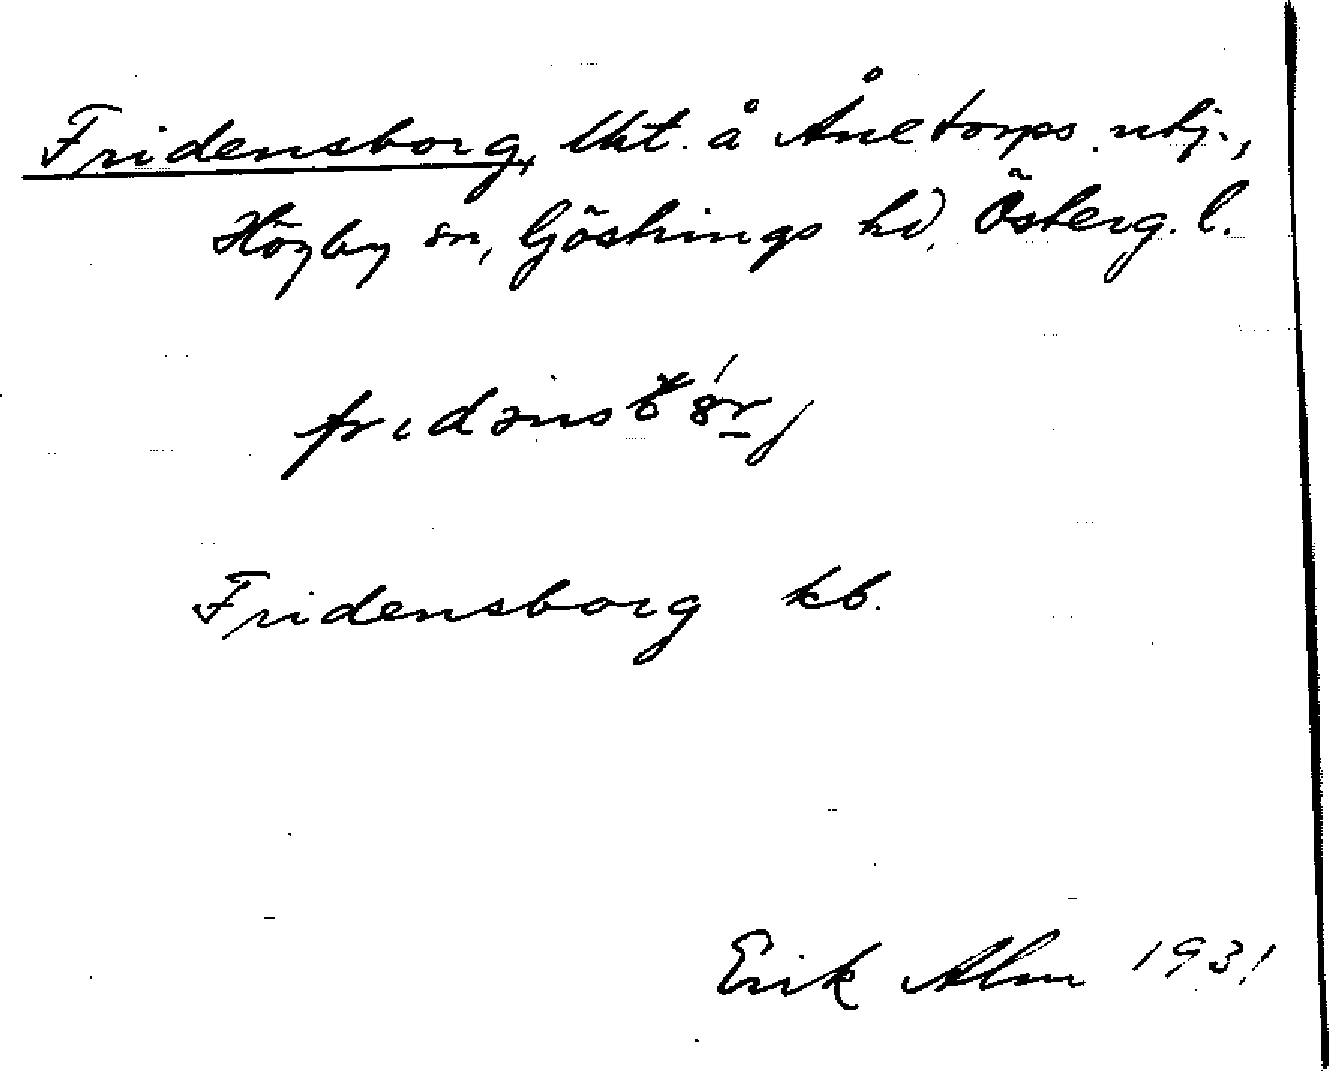 Fridensborg, lht. å Ånetorps utj.,
Högby sn, Göstrings hd, Österg. l.
Fridensborg kb.
Erik Alm 1931